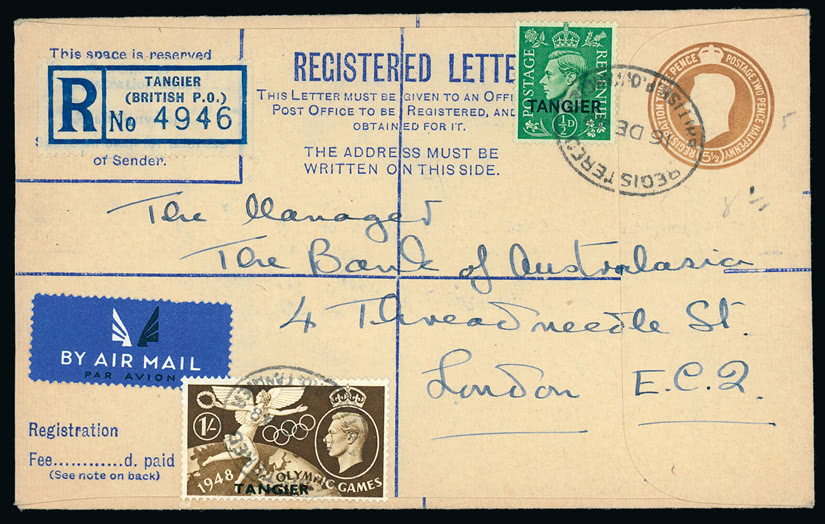 This space is reserved
TANGIER
(BRITISH P.O.)
R No 4946
of Sender.
REGISTERED LETTE
THIS LETTER MUST BE GIVEN TO AN OFFI
POST OFFICE TO BE REGISTERED, AND
OBTAINED FOR IT.
THE ADDRESS MUST BE
WRITTEN ON THIS SIDE.
POSTAGE REVENUE
TANGIER
½D
REGISTERED
16 DE
BRITISH P.O.
PENCE POSTAGE TWO PENCE HALFPENNY
REGISTRATION
5½
The Manager
The Bank of Australasia
4 Threadneedle St.
London E.C.2.
BY AIR MAIL
PAR AVION
1/-
1948
OLYMPIC GAMES
TANGIER
Registration
Fee............d. paid
(See note on back)